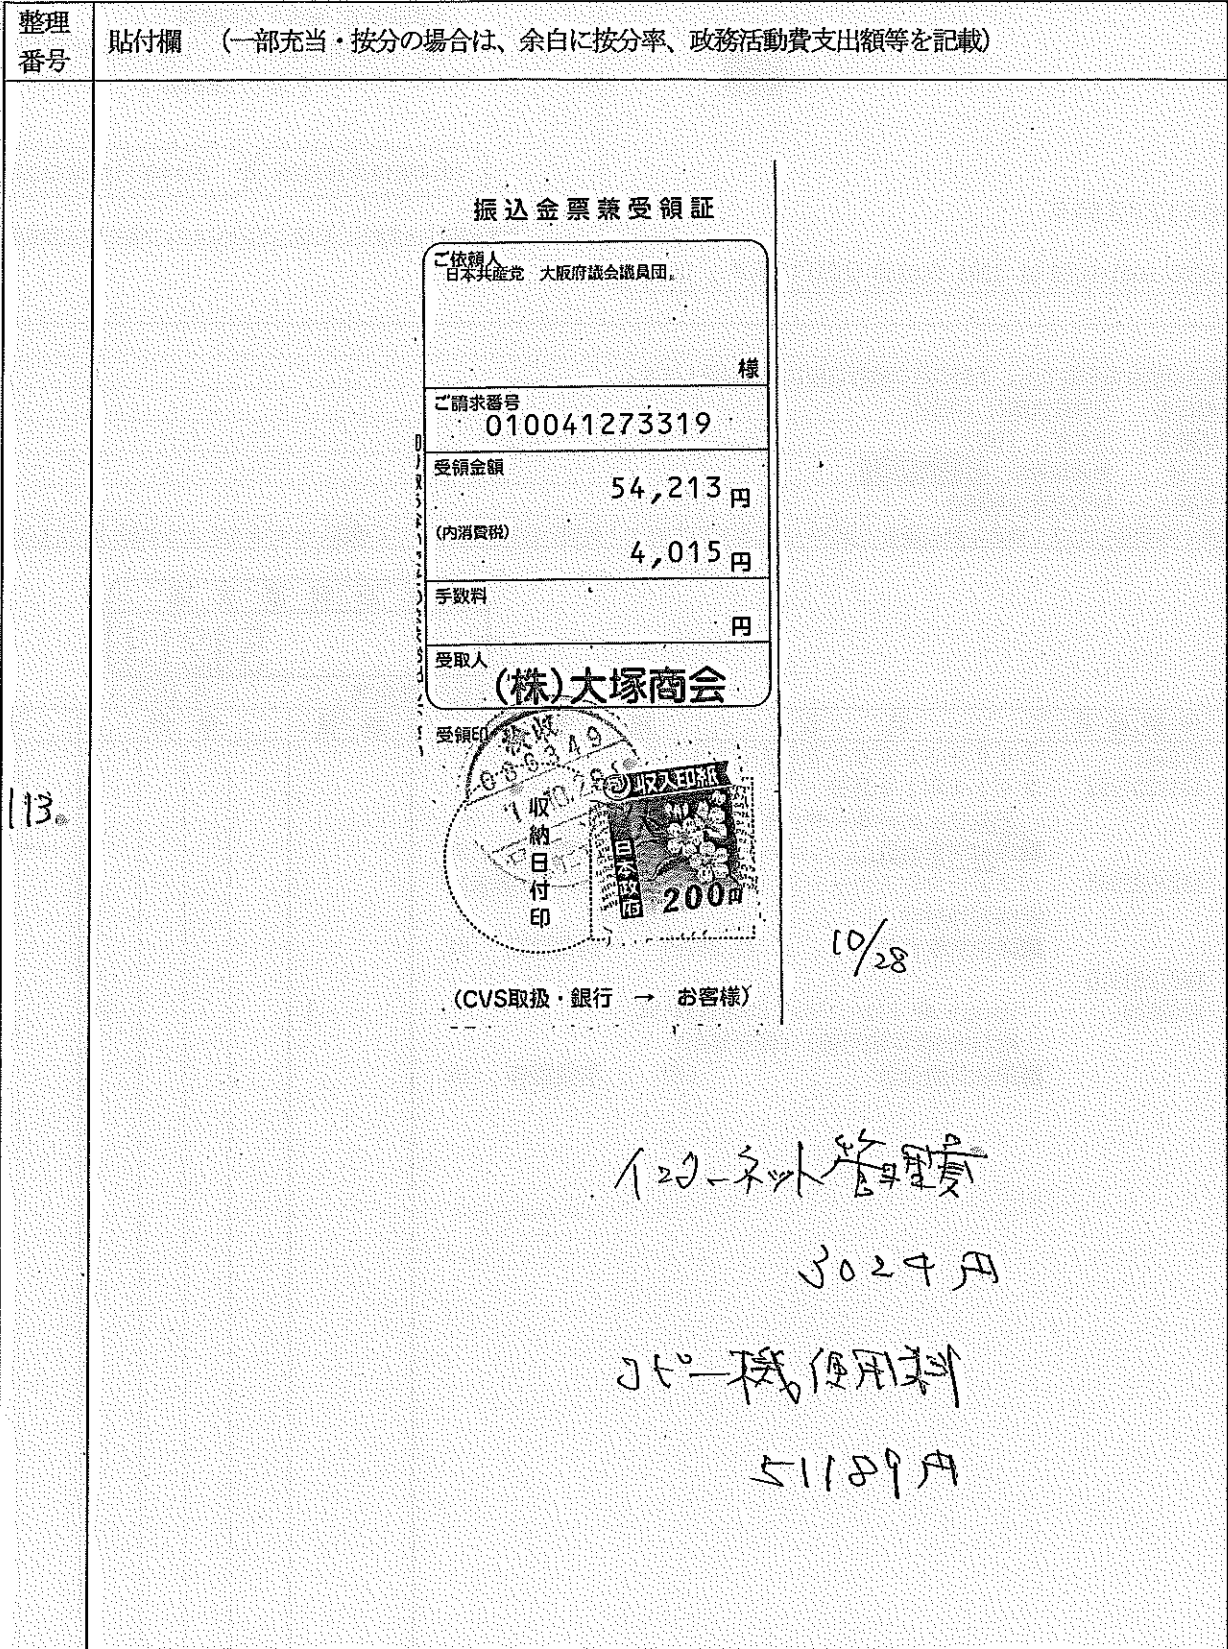 整理番号
貼付欄 （一部充当・按分の場合は、余白に按分率、政務活動費支出額等を記載）
振込金票兼受領証
ご依頼人
日本共産党 大阪府議会議員団
様
ご請求番号
010041273319
受領金額
54,213円
(内消費税)
4,015円
手数料
円
受取人
(株)大塚商会
受領印
086349
10.28
収入印紙
収納日付印
日本政府
200円
113.
10/28
(CVS取扱・銀行 → お客様)
インターネット管理費
3024円
コピー機使用料
51189円